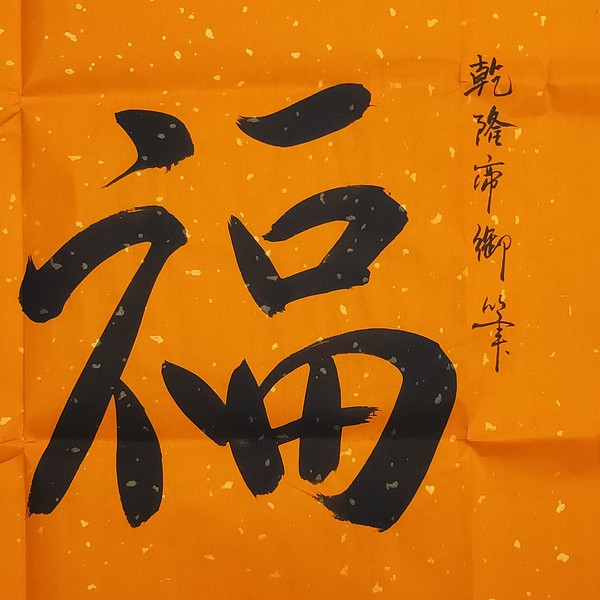 乾隆帝御筆
福